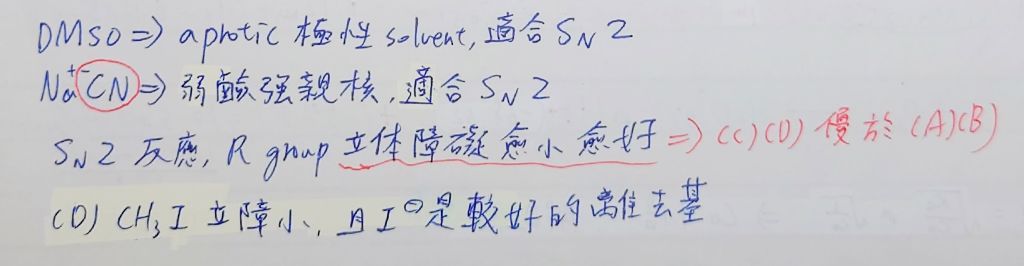 DMSO => aprotic 極性 solvent, 適合 SN2
Na⁺ ⁻CN => 弱鹼強親核, 適合 SN2
SN2 反應, R group 立体障礙愈小愈好 => (C)(D) 優於 (A)(B)
(D) CH₃I 立障小, 且 I⊖是較好的離去基